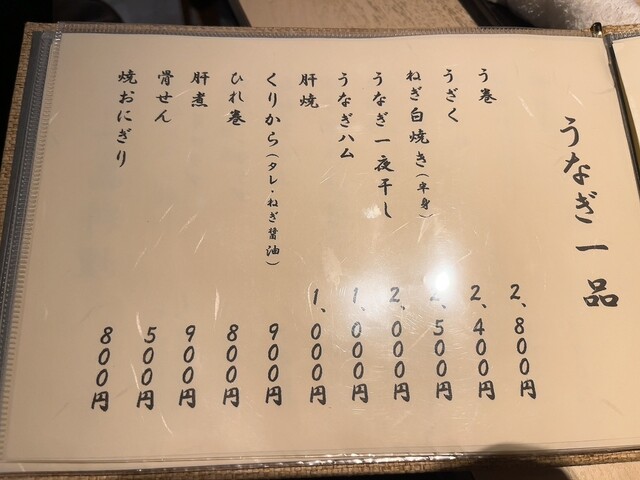 うなぎ一品
う巻 2、800円
うざく 2、400円
ねぎ白焼き(半身) 2、500円
うなぎ一夜干し 2、000円
うなぎハム 1、000円
肝焼 1、000円
くりから(タレ・ねぎ醤油) 900円
ひれ巻 800円
肝煮 900円
骨せん 500円
焼おにぎり 800円